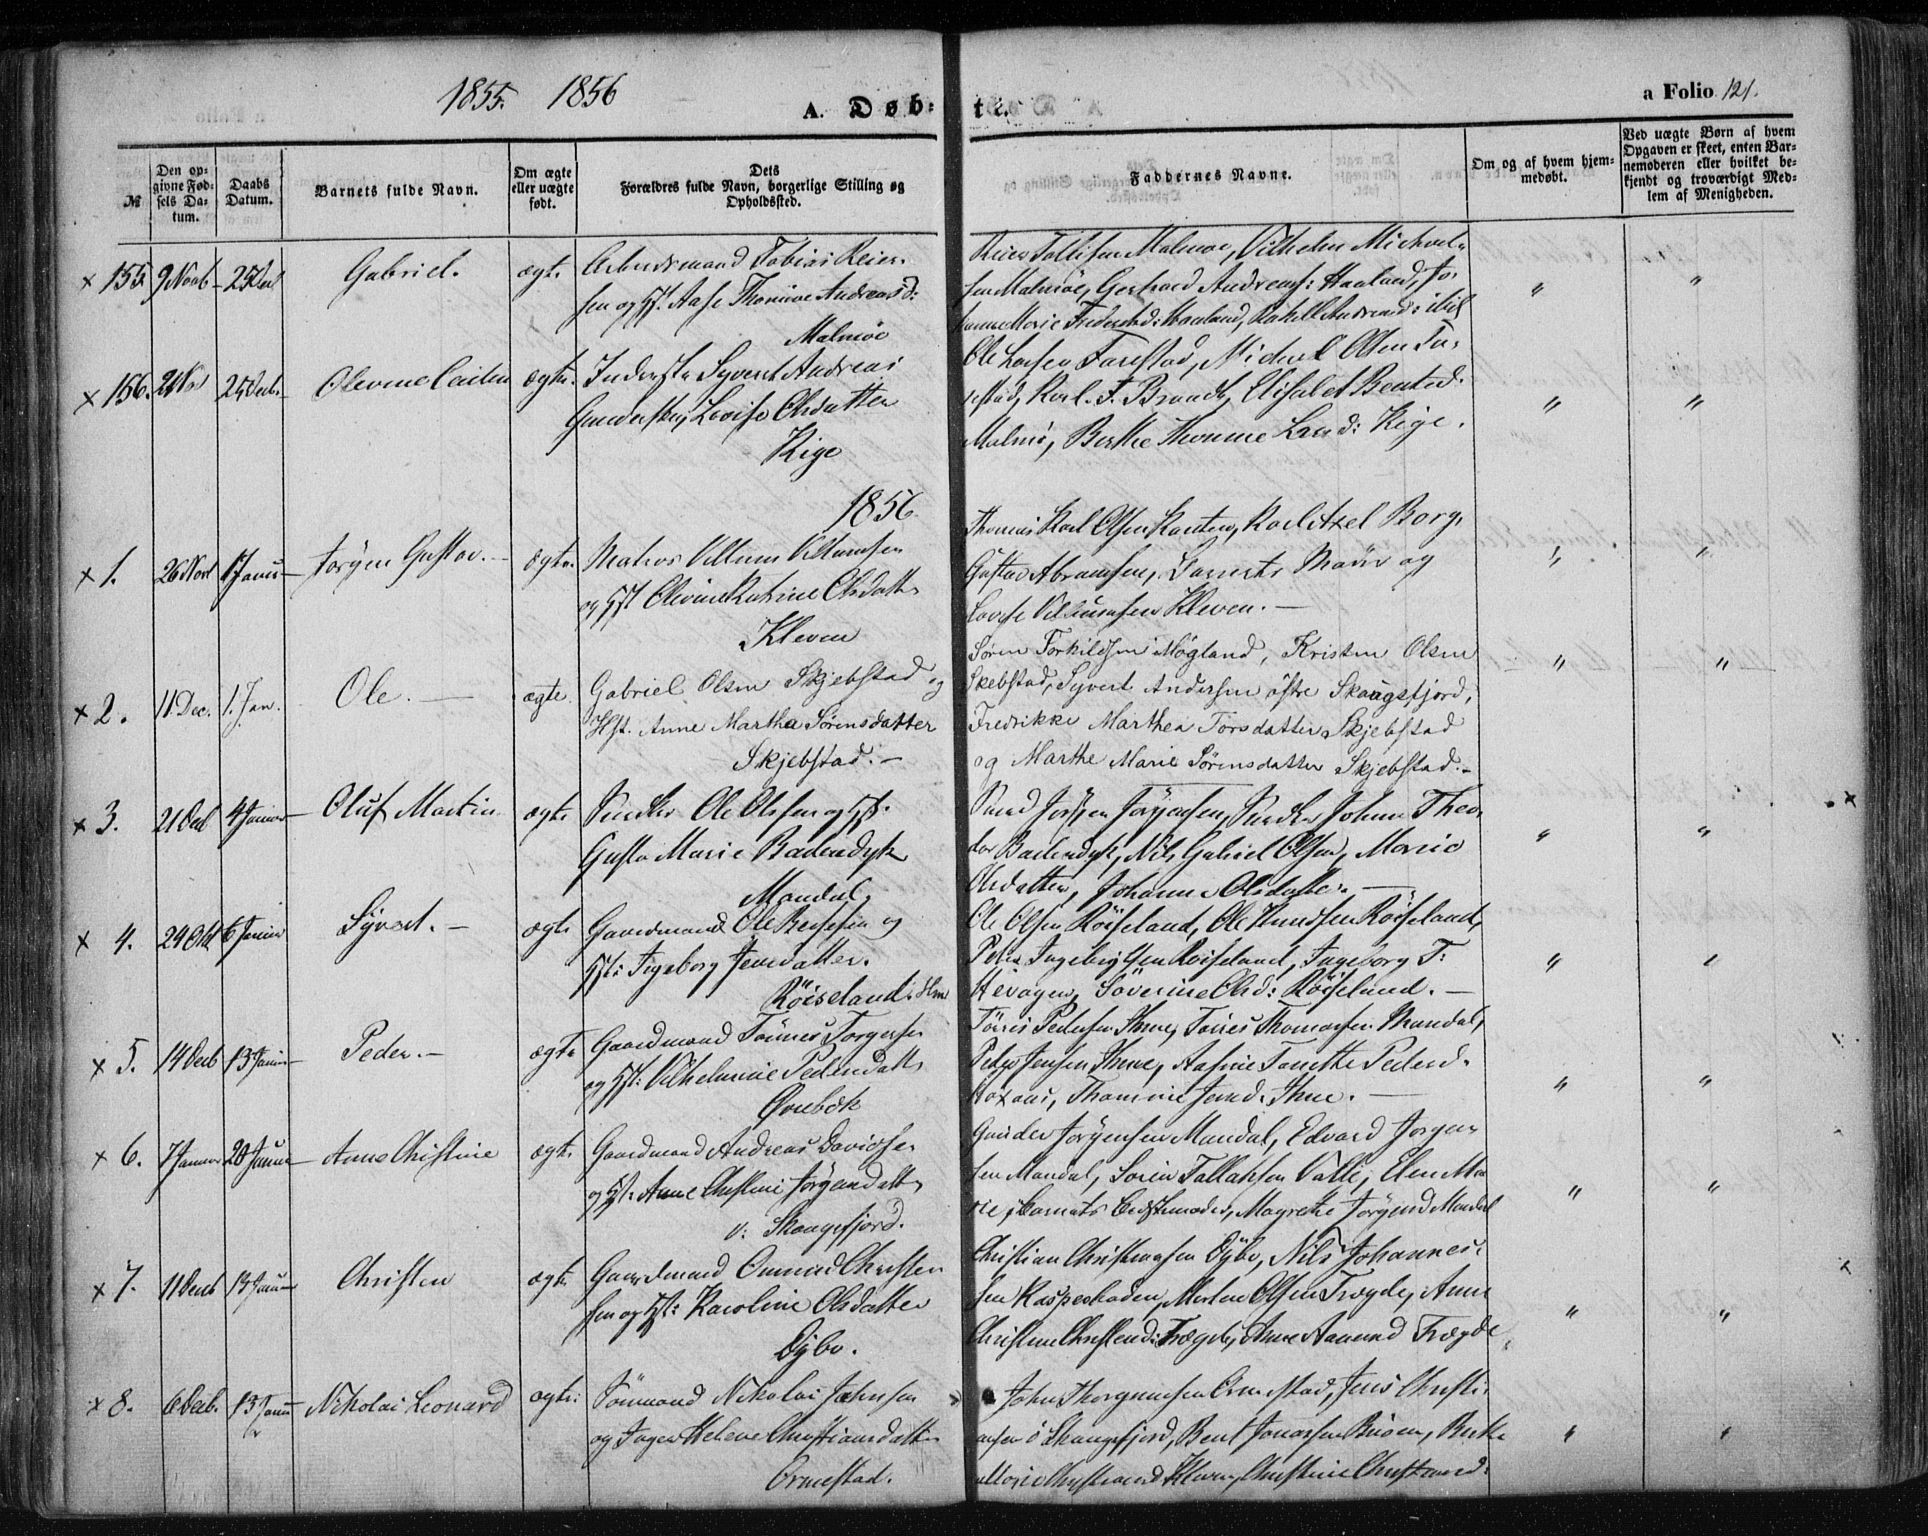 1855. 1856
A. Døb-
te.
a Folio 121.
№
Den op-
givne Fød-
sels Da-
tum.
Daabs
Datum.
Barnets fulde Navn.
Om ægte
eller uægte
født.
Dets
Forældres fulde Navn, borgerlige Stilling og
Opholdssted.
Faddernes Navne.
Om og af hvem hjem-
medøbt.
Ved uægte Børn af hvem
Opgaven er skeet, enten Bar-
nemoderen eller hvilket be-
kjendt og troværdigt Med-
lem af Menigheden.
x 155 9 Novb 25 Decb Gabriel. ægte Arbeidsmand Tobias Reier-
sen og Hst. Aase Thomine Andreasd:
Malmøe
Reier Tollisen Malmøe, Vilhelm Michael-
sen Malmøe, Gerhard Andreas: Haaland, Jo-
Marie Haaland, "
"
x 156. 25 Decb. Olevine ægte. Inderste Syvert Andreas
Gundersen, Lovise Olsdatter
Kige
Ole Larsen Farestad, Michael Olsen Fa-
restad, Karl. F. Brandt, Elisabet Bentsd.
Malmø, Berthe Thomine Larsd: Kige. "
"
1856
x 1. 26 Novb 1 Januar Jørgen Gustav. ægte. Matros Villum Villumsen
og Hst Olevine Katrine Olsdatter
Kleven
Thomas Karl Olsen Karl Axel Borg,
Gustav Abramsen, Barnets Moder og
Lovise Villumsen Kleven. "
"
x 2. 11 Dec. 1. Jan. Ole. ægte Gabriel Olsen Skjebstad og
Hst. Anne Martha Sørensdatter
Skjebstad.
Søren Torkildsen Møgland, Kristen Olsen
Skebstad, Syvert Andersen østre Skaugsfjord,
Fredrikke Marthea Torsdatter Skjebstad
og Marthe Marie Sørensdatter Skjebstad. "
"
x 3. 21 Decb 4 Januar Oluf Martin ægte Ole Olsen og Hst.
Gusta Marie Badendyk
Mandal
Jørgensen, Johan Theo-
dor Badendyk, Nils Gabriel Olsen, Marie
Olsdatter, Johanne Olsdatter. "
"
x 4. 24 Okt 6 Januar Syvert. ægte Gaardmand Ole
og
Hst: Ingeborg Jensdatter.
Røiseland i Hm
Ole Olsen Røiseland, Ole Knudsen Røiseland,
Peder Ingebrigtsen Røiseland, Ingeborg T:
Søverine Olsd: Røiseland. "
"
x 5. 14 Decb 13 Januar Peder. ægte Gaardmand Tønnes Torgersen
og Hst: Vilhelmine Pedersdatter
Øvrebøk
Tørris Pedersen Ihme, Torres Thomassen Mandal,
Peder Jensen Ihme, Pedersd.
Thomine Jensd. Ihme. "
"
x 6. 7 Januar 20 Januar Anne Christine ægte Gaardmand Andreas Davidsen
og Hst. Anne Christine Jørgensdatter
v: Skaugsfjord.
Gunder Jørgensen Mandal, Edvard Jørgen-
sen Mandal, Søren Tallaksen Valle, Elen Ma-
rie, Barnets Bedstemoder, Magrethe Jørgensd Mandal "
"
x 7. 11 Decb 13 Januar Christen ægte Gaardmand Omund Christen-
sen og Hst: Karoline Olsdatter
Dybo.
Christian Christiansen Dybo, Nils Johannes-
sen Kasperbaden, Morten Olsen Trægde, Anne
Christine Christensd: Trægde, Anne Aanensd Trægde "
"
x 8. 6 Decb. 13 Januar Nikolai Leonard ægte: Sømand Nikolai Jahnsen
og Inger Helene Christiansdatter
Ormestad.
John Thorgrimsen Ormestad, Jens Christi-
ansen ø Skaugsfjord, Bent Jonassen Buøen, Berthe
Marie Christiansd Kleven, Christine Christiansd: "
"